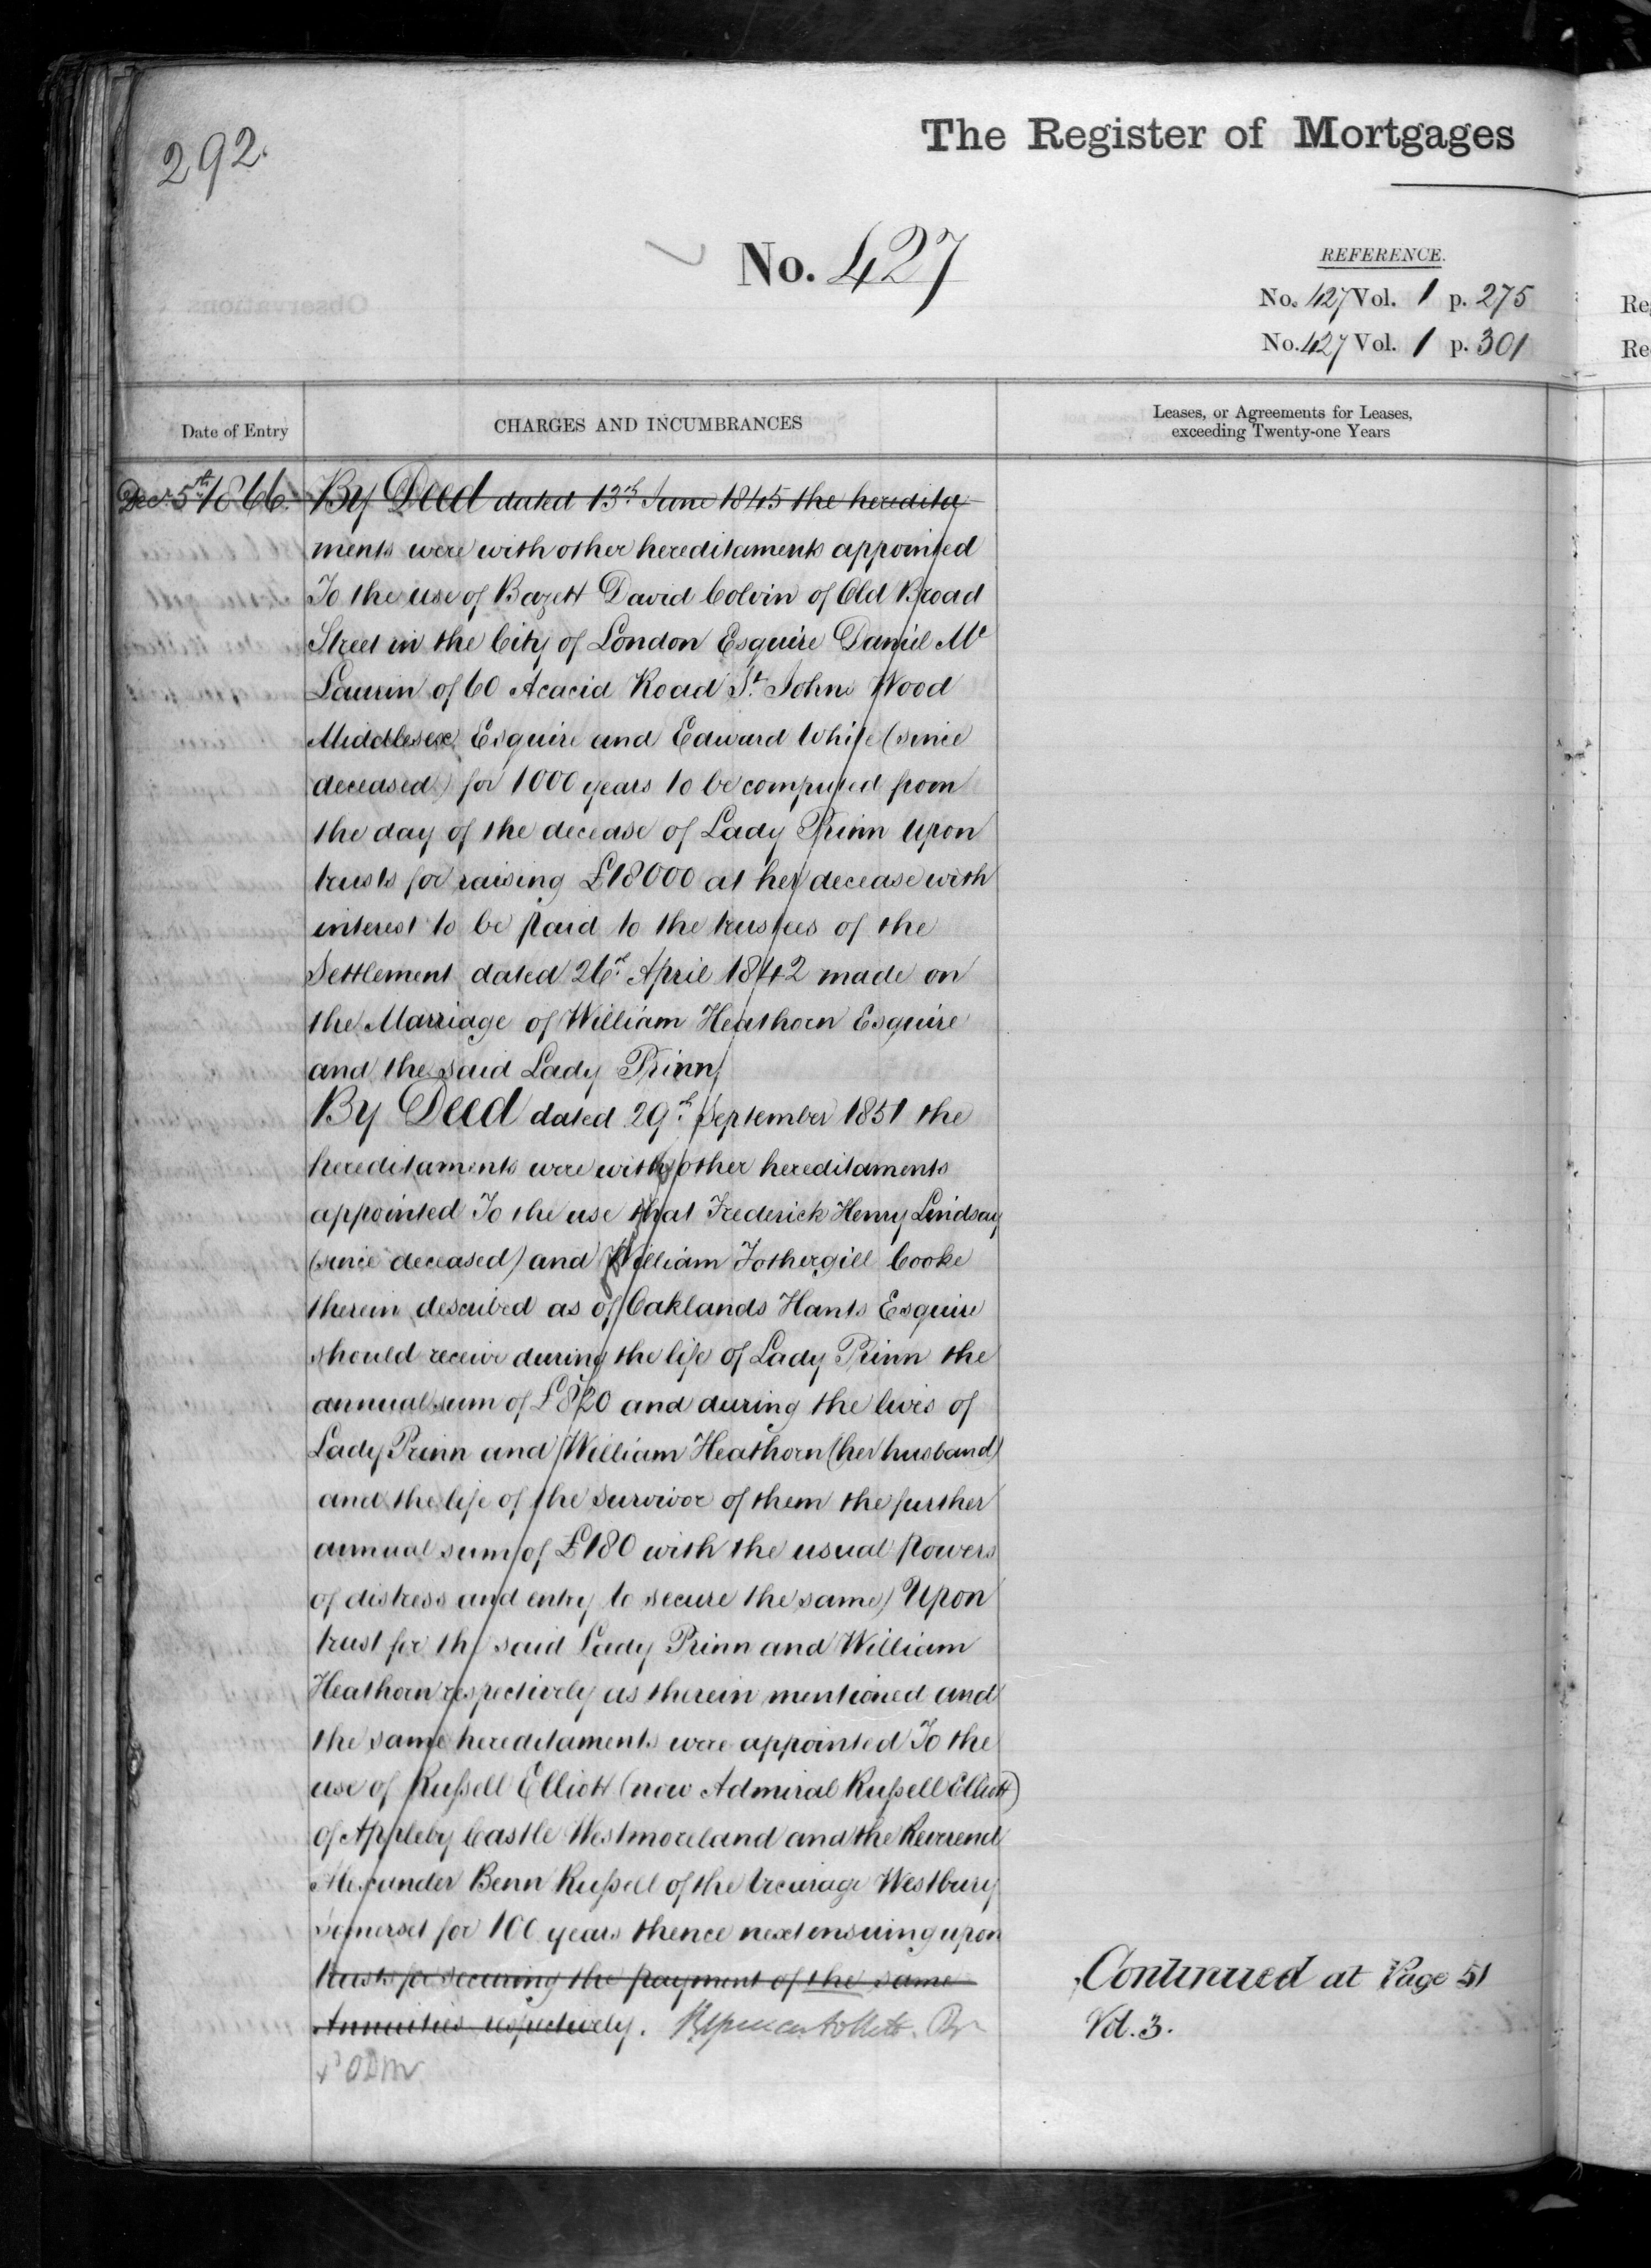 292.
The Register of Mortgages
No. 427
REFERENCE.
No. 427 Vol. 1 p. 275
No. 427 Vol. 1 p. 301
Date of Entry
CHARGES AND INCUMBRANCES
Leases, or Agreements for Leases,
exceeding Twenty-one Years
Decr. 5th 1866. By Deed dated 13th June 1845 the heredita
ments were with other hereditaments appointed
To the use of Bazett David Colvin of Old Broad
Street in the City of London Esquire Daniel Mc
Laurin of 60 Acacia Road St. Johns Wood
Middlesex Esquire and Edward White (since
deceased) for 1000 years to be computed from
the day of the decease of Lady Prinn Upon
trusts for raising £18000 at her decease with
interest to be paid to the trustees of the
Settlement dated 26th April 1842 made on
the Marriage of William Heathorn Esquire
and the said Lady Prinn
By Deed dated 29th September 1851 the
hereditaments were with other hereditaments
appointed To the use that Frederick Henry Lindsay
(since deceased) and William Fothergill Cooke
therein described as of Oaklands Hants Esquire
should receive during the life of Lady Prinn the
annual sum of £820 and during the lives of
Lady Prinn and William Heathorn (her husband)
and the life of the survivor of them the further
annual sum of £180 with the usual powers
of distress and entry to secure the same) Upon
trust for the said Lady Prinn and William
Heathorn respectively as therein mentioned and
the same hereditaments were appointed To the
use of Rußell Elliott (now Admiral Rußell Elliott)
of Appleby Castle Westmoreland and the Reverend
Alexander Benn Rußell of the Vicarage Westbury
Somerset for 100 years thence next ensuing upon
trusts for securing the payment of the same
Annuities respectively.
Continued at Page 51
Vol. 3.